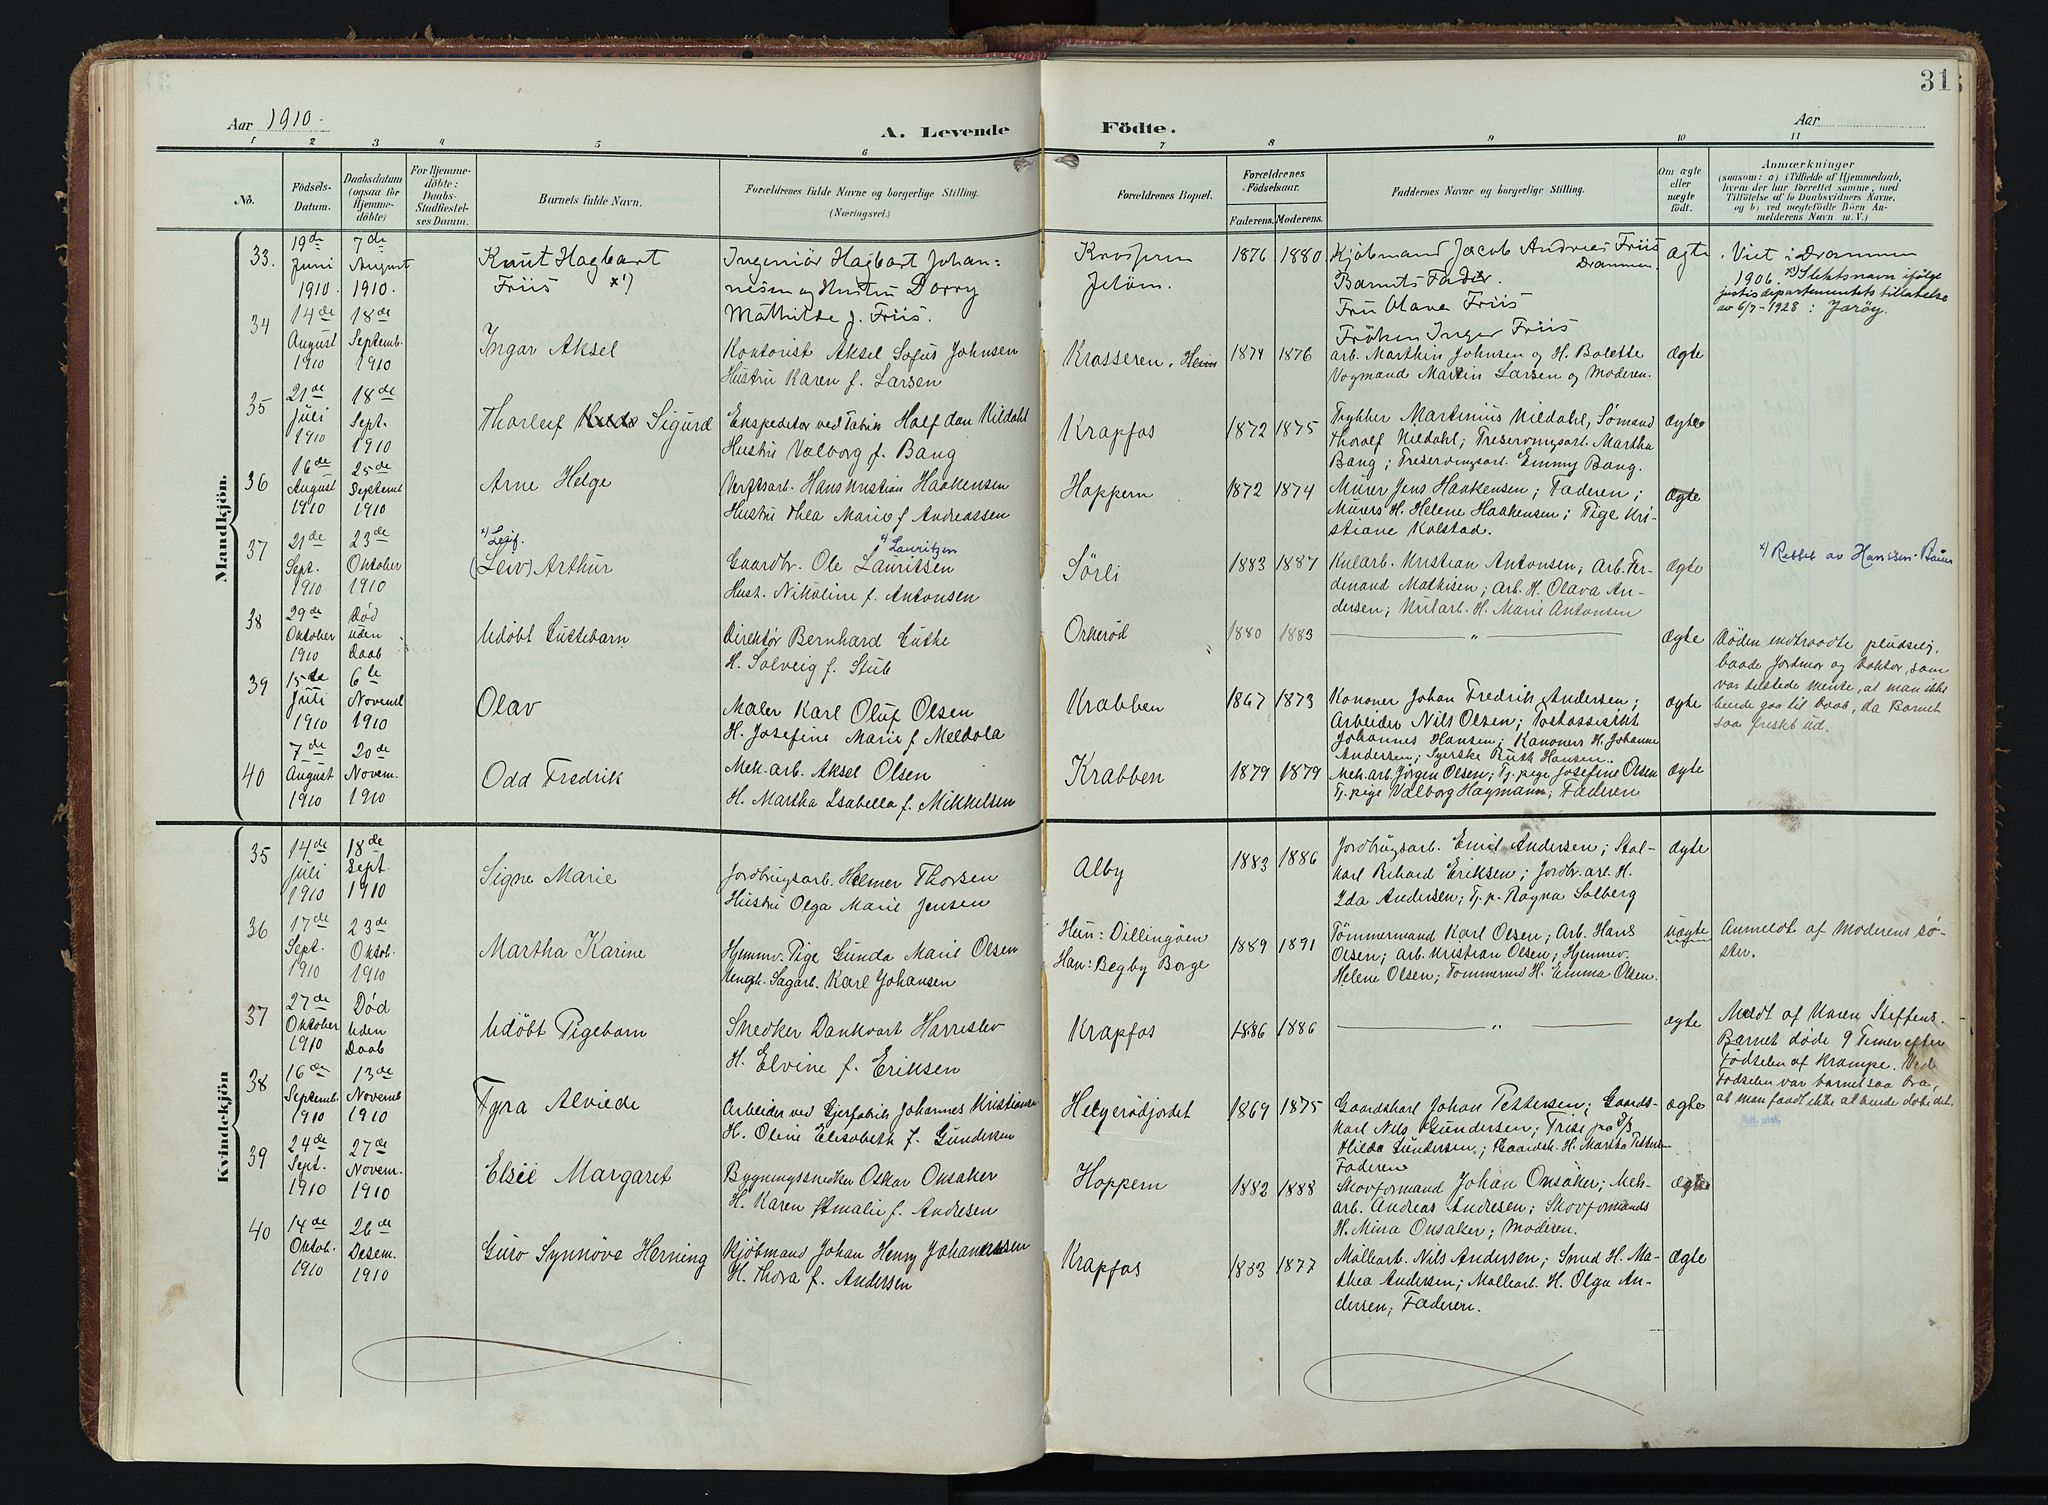 31
Aar 1910.
A. Levende Födte.
Aar
1 2 3 4 5 6 7 8 9 10 11
No.
Födsels-Datum.
Daabsdatum (ogsaa for Hjemme-döbte)
For Hjemme-döbte: Daabs-Stadfæstel-ses Datum.
Barnets fulde Navn.
Forældrenes fulde Navne og borgerlige Stilling.
(Næringsvei.)
Forældrenes Bopæl.
Forældrenes Födselsaar.
Faderens. Moderens.
Faddernes Navne og borgerlige Stilling.
Om ægte eller uægte födt.
Anmærkninger
(saasom: a) i Tilfælde af Hjemmedaab,
hvem der har forrettet samme, med
Tilföielse af to Daabsvidners Navne,
og b) ved uægtefödte Börn An-
melderens Navn m. V.)
Mandkjön.
33. 19de Juni 1910. 7de August 1910.
Knut Hagbart
Friis x')
Ingeniör Hagbart Johan=
nesen og Hustru Dorry
Mathilde f. Friis.
Jelöm.
1876 1880
Kjöbmand Jacob Andreas Friis
Drammen.
Barnets Fader.
Fru Olava Friis
Fröken Inger Friis
ægte
Viet i Drammen
1906. x) Slektsnavn ifölge
justisdepartementets tillatelse
av 6/7-1928: Jaröy.
34 14de August 1910 18de Septemb. 1910
Ingar Aksel
Kontorist Aksel Sofus Johnsen
Hustru Karen f. Larsen
Krosseren.
1874 1876
arb. Marthin Johnsen og H. Bolette
Vogmand Martin Larsen og Moderen.
Ægte
35 21de Juli 1910 18de Sept. 1910
Thorleif Sigurd
Ekspeditör ved Halfdan Nildahl
Hustru Valborg f. Bang
Krapfos
1872 1875
Trykker Martinius Nildahl, Sømand
Thoralf Nildahl; Preserveringsarb. Martha
Bang; Preserveringsarb. Emmy Bang.
ægte
36 16de August 1910 25de Septemb 1910
Arne Helge
Verftsarb. Hans Kristian Haakensen
Hustru Thea Marie f. Andreassen
Hoppern
1872 1874
Murer Jens Haakensen; Faderen;
Murers H. Helene Haakensen; Pige Kri-
stiane Kolstad.
ægte
37 21de Sept. 1910 23de Oktober 1910
x) Leif.
(Leiv) Arthur
x) Lauritzen
Gaardbr. Ole Lauritsen
Hust. Nikoline f. Antonsen
Sørli
1883 1887
Kularb. Kristian Antonsen; Arb. Fer-
dinand Mathisen; Arb. H. Olava An-
dersen; Kularb. H. Marie Antonsen
ægte
x) Rettet av Hanssen-Bauer
38 29de Oktober 1910 Død uden Daab
Udöbt Guttebarn
Direktør Bernhard Guthe
H. Solveig f. Stub
Orkerød
1880 1883
"
ægte
Døden indtraadte pludselig,
baade Jordmor og Doktor, som
var tilstede mente, at man ikke
burde gaa til Daab, da Barnet
saa friskt ud.
39 15de Juli 1910 6te Novemb 1910
Olav
Maler Karl Oluf Olsen
H. Josefine Marie f. Meldola
Krabben
1867 1873
Kanoner Johan Fredrik Andersen;
Arbeider Nils Olsen;
Johannes Hansen; Kanoners H. Johanne
Andersen; Syerske Ruth Hansen.
ægte
40 7de August 1910 20de Novem. 1910
Odd Fredrik
Mek. arb. Aksel Olsen
H. Martha Isabella f. Mikkelsen
Krabben
1879 1879
Mek. arb. Jørgen Olsen; Tj. pige Josefine Olsen
Tj. pige Valborg Hagmann; Faderen
ægte
Kvindekjön
35 14de Juli 1910 18de Sept 1910
Signe Marie
Jordbrugsarb. Helmer Thorsen
Hustru Olga Marie Jensen
Alby
1883 1886
Jordbrugsarb. Emil Andersen; Stal-
karl Rikard Eriksen; Jordbr. arb. H.
Ida Andersen; Tj. p. Ragna Solberg
ægte
36 17de Sept. 1910 23de Oktob. 1910
Martha Karine
Hjemmv. Pige Gunda Marie Olsen
Ungk. Sagarb. Karl Johansen
Hun: Dillingöen
Han: Begby Borge
1889 1891
Tømmermand Karl Olsen; Arb. Hans
Olsen; arb. Kristian Olsen; Hjemmev.
Helene Olsen; Tømmermd H. Emma Olsen.
uægte
Anmeldt af Moderens sø-
ster.
37 27de Oktober 1910 Død Uden Daab
Udöbt Pigebarn
Snedker Dankvart Harreslev
H. Elvine f. Eriksen
Krapfos
1886 1886
"
ægte
Meldt af Karen Steffens.
Barnet døde 9 Timer efter
Fødselen af Krampe. Ved
Fødselen var barnet saa bra,
at man fandt ikke at burde döbe det.
38 16de Septemb. 1910 13de Novemb 1910
Fyra Alviede
Arbeider ved Gjerfabrik Johannes Kristiansen
H. Oline Elisabeth f. Gundersen
Helgerødjordet
1869 1875
Gaardskarl Johan Pettersen; Gaards-
karl Nils Gundersen; Frise
Hilda Gundersen; Gaardsk. H. Martha Petters.
Faderen
ægte
39 24de Sept. 1910 27de Novem. 1910
Elsie Margaret
Bygningssnekker Oskar Onsaker
H. Karen Amalie f. Andresen
Hoppern
1882 1888
Skovformand Johan Onsaker; Mek-
arb. Andreas Andresen; Skovformands
H. Mina Onsaker; Moderen.
ægte
40 14de Oktob. 1910 26de Desem. 1910
Guro Synnøve Herning
Kjöbmand Johan Henry Johannessen
H. Thora f. Andersen
Krapfos
1883 1877
Møllearb. Nils Andersen; Smed H. Ma-
thea Andersen; Møllearb. H. Olga An-
dersen; Faderen.
Ægte